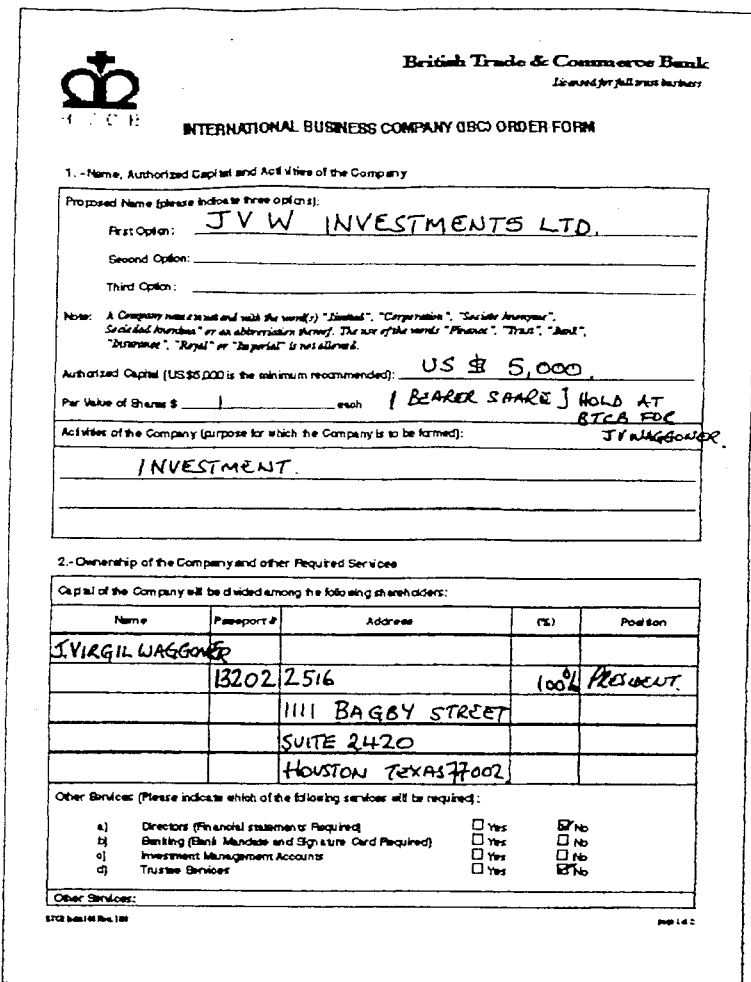 British Trade & Commerce Bank
Licensed for full trust business
B T C B
INTERNATIONAL BUSINESS COMPANY (IBC) ORDER FORM
1. - Name, Authorized Capital and Activities of the Company
Proposed Name (please indicate three options):
First Option: JVW INVESTMENTS LTD.
Second Option:
Third Option:
Note: A Company name must end with the word(s) "Limited", "Corporation", "Societe Anonyme",
Sociedad Anonima" or an abbreviation thereof. The use of the words "Finance", "Trust", "Bank",
"Insurance", "Royal" or "Imperial" is not allowed.
Authorized Capital (US $5,000 is the minimum recommended): US $ 5,000.
Par Value of Shares $ 1 each 1 BEARER SHARE] HOLD AT
BTCB FOR
Activities of the Company (purpose for which the Company is to be formed): JV WAGGONER.
INVESTMENT.
2.- Ownership of the Company and other Required Services
Capital of the Company will be divided among the following shareholders:
Name Passport # Address (%) Position
J.VIRGIL WAGGONER
13202 2516 100% PRESIDENT.
1111 BAGBY STREET
SUITE 2420
HOUSTON TEXAS 77002
Other Services (Please indicate which of the following services will be required):
a) Directors (Financial statements Required) Yes No
b) Banking (Bank Mandate and Signature Card Required) Yes No
c) Investment Management Accounts Yes No
d) Trustee Services Yes No
Other Services:
page 1 of 2